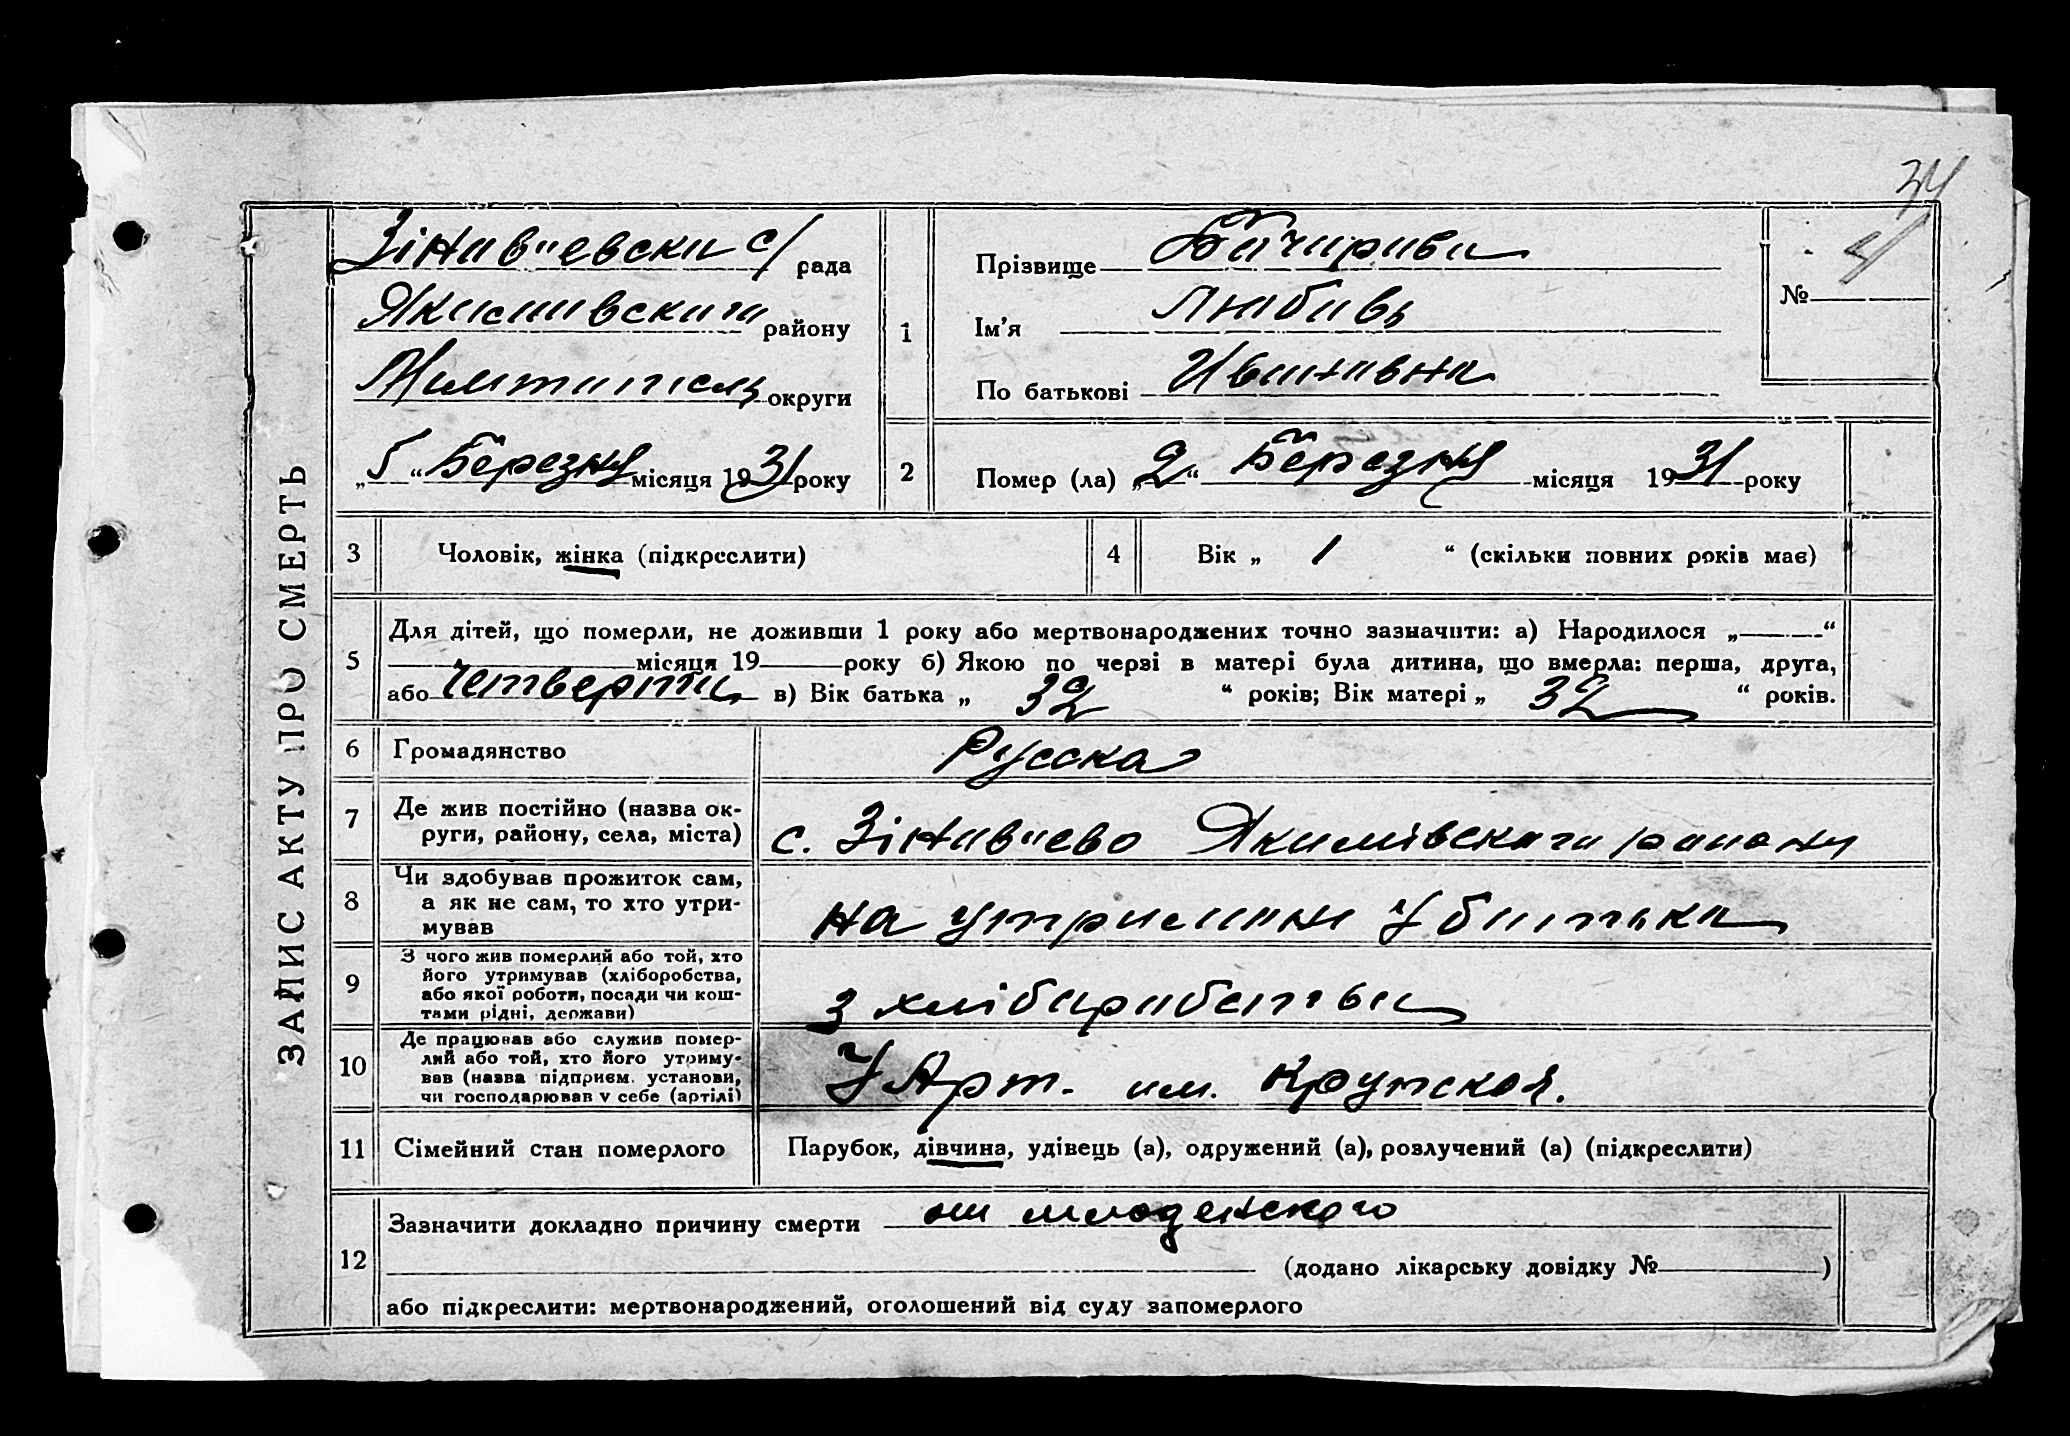 34
ЗАПИС АКТУ ПРО СМЕРТЬ
Зіновиевска с/рада
Якимовского району
Мелитопель округи
„5“ Березня місяця 1931 року
1
Прізвище Бочарова
Ім’я Любовь
По батькові Ивановна
№
4
2
Помер (ла) „2“ Березня місяця 1931 року
3
Чоловік, жінка (підкреслити)
4
Вік „ 1 “ (скільки повних років має)
5
Для дітей, що померли, не доживши 1 року або мертвонароджених точно зазначити: а) Народилося „ “
місяця 19 року б) Якою по черзі в матері була дитина, що вмерла: перша, друга,
або четверта в) Вік батька „ 32 “ років; Вік матері „ 32 “ років.
6
Громадянство
Русска
7
Де жив постійно (назва ок-
руги, району, села, міста)
с. Зіновиево Якимівского района
8
Чи здобував прожиток сам,
а як не сам, то хто утри-
мував
на утримани У батька
9
З чого жив померлий або той, хто
його утримував (хліборобства,
або якої роботи, посади чи кош-
тами рідні, держави)
з хліборобства
10
Де працював або служив помер-
лий або той, хто його утриму-
вав (назва підприєм. установи,
чи господарював у себе (артілі)
У Арт. им. Крупской.
11
Сімейний стан померлого
Парубок, дівчина, удівець (а), одружений (а), розлучений (а) (підкреслити)
12
Зазначити докладно причину смерти от младенского
(додано лікарську довідку № )
або підкреслити: мертвонароджений, оголошений від суду запомерлого